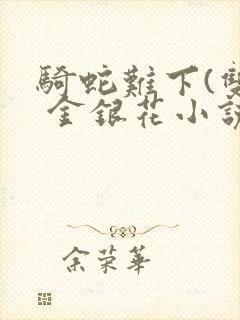 騎蛇難下(雙
金銀花小說
余荣華